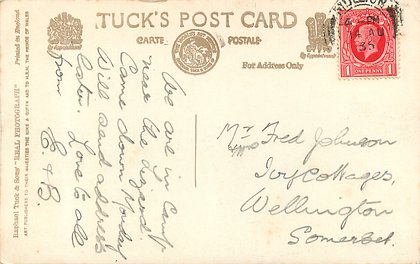 TUCK'S POST CARD
CARTE POSTALE
By Appointment
By Appointment
For Address Only
Raphael Tuck & Sons' "REAL PHOTOGRAPH"
ART PUBLISHERS TO THEIR MAJESTIES THE KING & QUEEN AND TO H.R.H. THE PRINCE OF WALES
Printed in England
AU
35
1 ONE PENNY 1
We are in Camp
near the
Came down Monday
Will send address
later. Love to all
from
E & B.
Mr Fred Johnson
Ivy Cottages,
Wellington
Somerset.